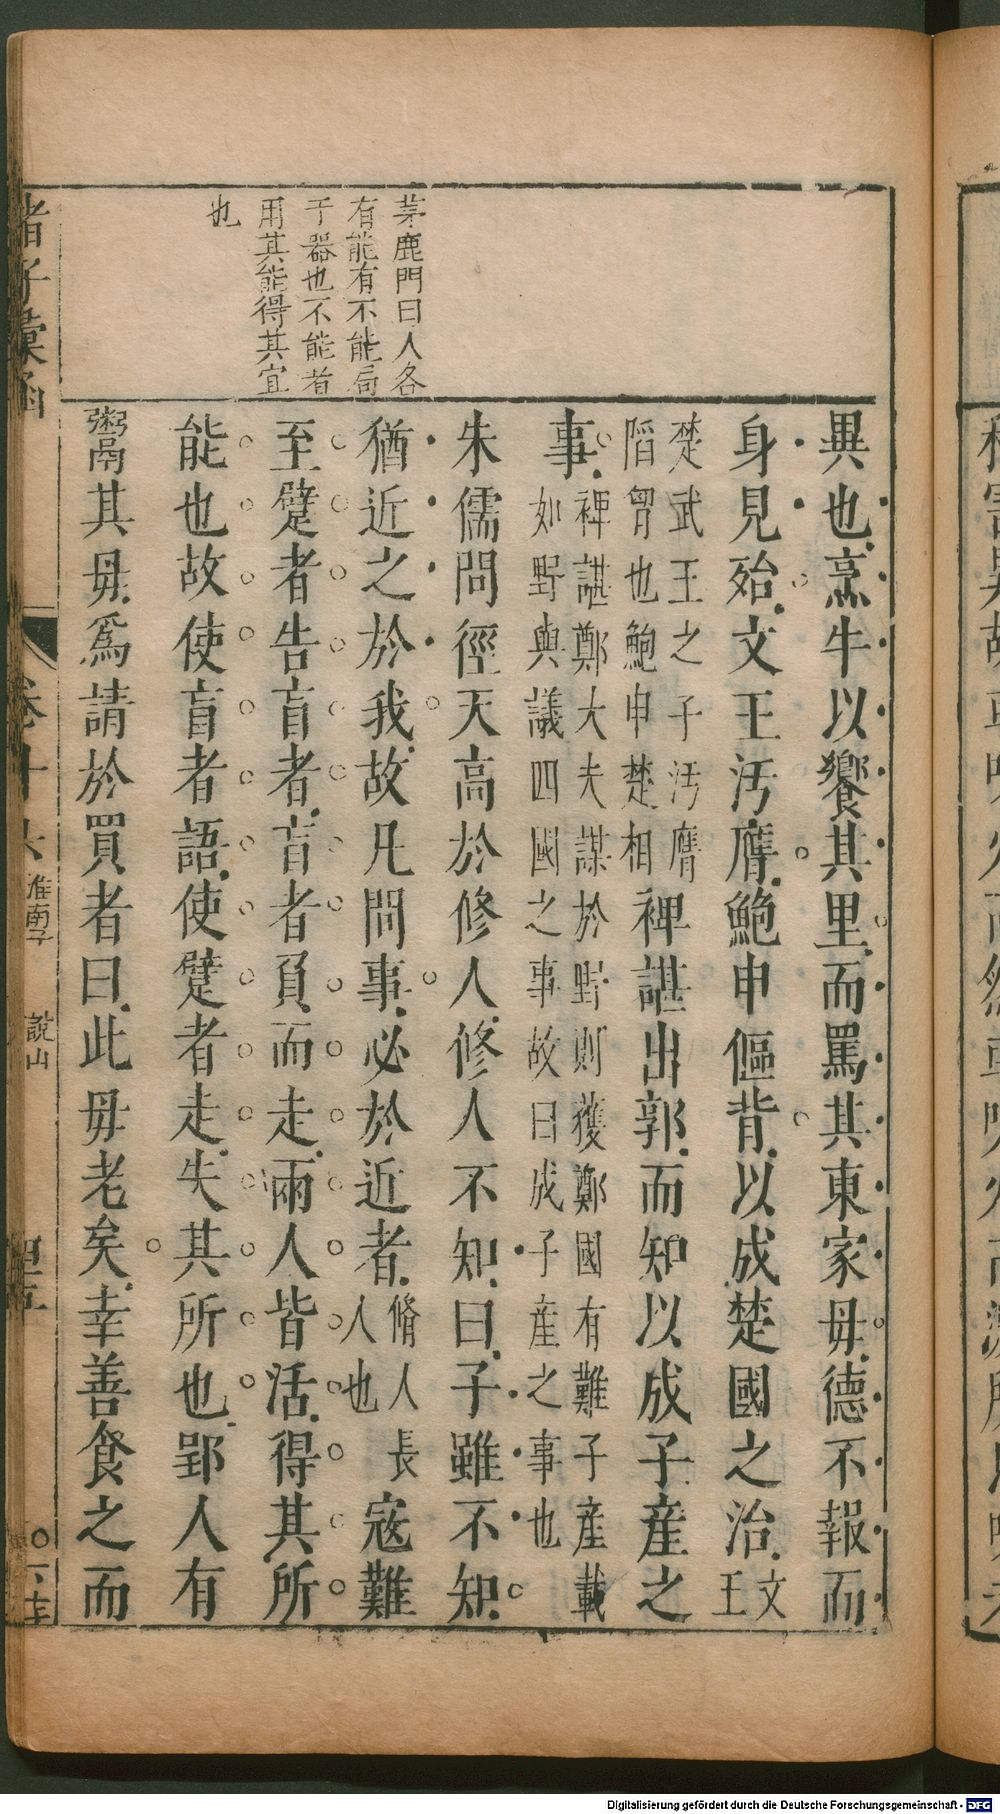 茅鹿門曰人各
有能有不能局
于器也不能者
用其能得其宜
也
異也烹牛以饗其里而罵其東家毋德不報而
身見殆文王汚膺鮑申傴背以成楚國之治文王
楚武王之子汚膺
陷胷也鮑申楚相
裨諶出郭而知以成子產之
事裨諶鄭大夫謀於野則獲鄭國有難子產載
如野與議四國之事故曰成子產之事也
朱儒問徑天高於修人修人不知曰子雖不知
猶近之於我故凡問事必於近者脩人長
人也
寇難
至躄者告盲者盲者負而走兩人皆活得其所
能也故使盲者語使躄者走失其所也郢人有
鬻其毋爲請於買者曰此毋老矣幸善食之而
諸子彙函
卷十六
淮南子
說山
四五